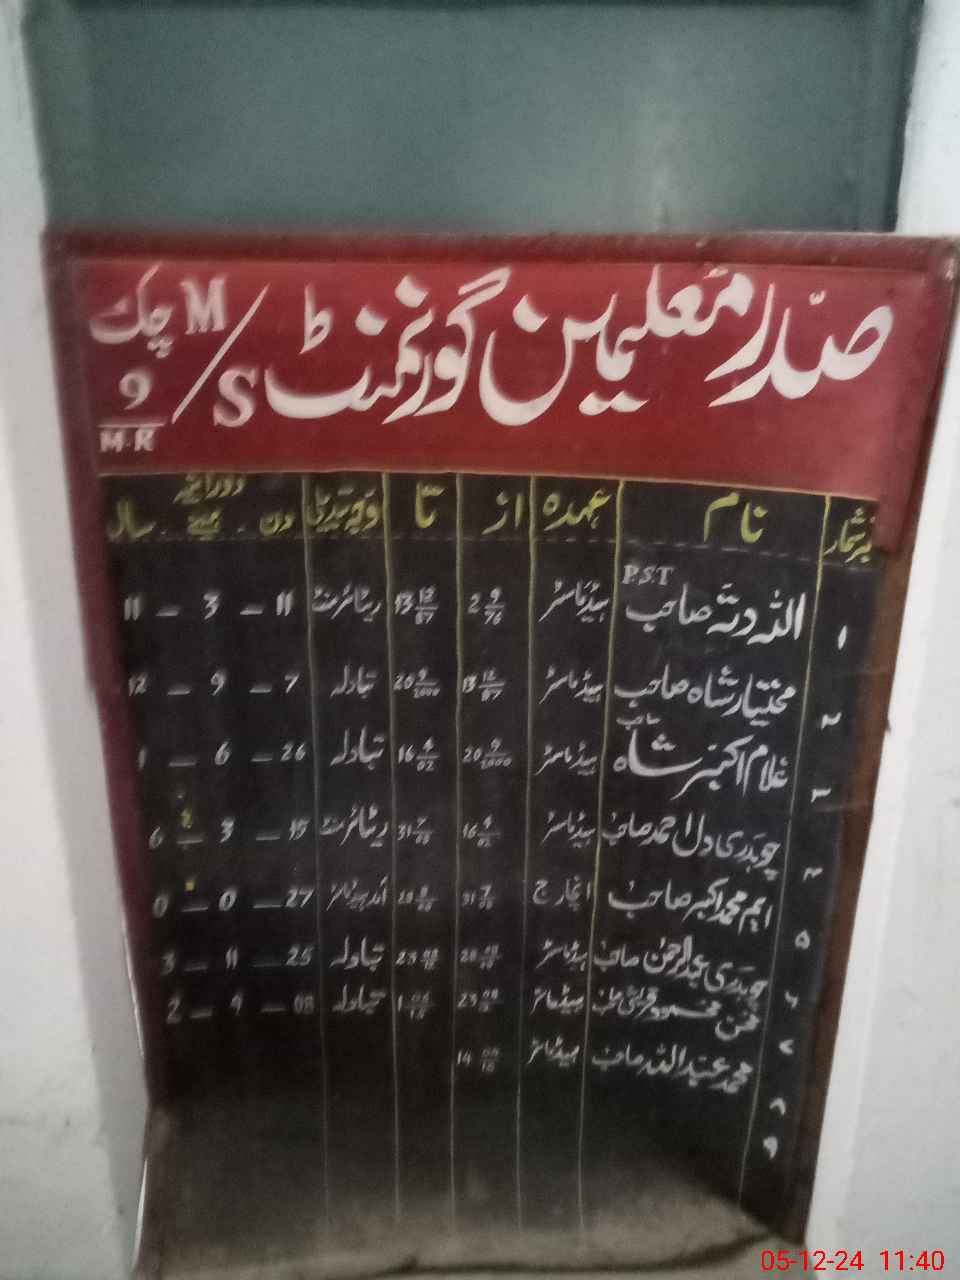 صدر معلمین گورنمنٹ M/S چک 9/M-R
نمبر شمار نام عہدہ از تا وجہ تبدیلی دورانیہ
دن مہینے سال
P.S.T
۱ اللہ دتہ صاحب ہیڈماسٹر 2 9/76 13 12/87 ریٹائرمنٹ 11 – 3 – 11
۲ مختیار شاہ صاحب ہیڈماسٹر 13 12/87 20 9/2000 تبادلہ 7 – 9 – 12
۳ غلام اکبر شاہ صاحب ہیڈماسٹر 20 9/2000 16 4/02 تبادلہ 26 – 6 – 1
۴ چوہدری دل احمد صاحب ہیڈماسٹر 16 4/02 31 ریٹائرمنٹ 15 – 3 – 6
۵ ایم محمد اکبر صاحب انچارج 31 28 آمد ہیڈماسٹر 27 – 0 – 0
۶ چوہدری عبدالرحمن صاحب ہیڈماسٹر 28 23 تبادلہ 25 – 11 – 3
۷ محمود قریشی ہیڈماسٹر 23 1 تبادلہ 08 – 9 – 2
۸ محمد عبداللہ صاحب ہیڈماسٹر 14
۹
05-12-24 11:40